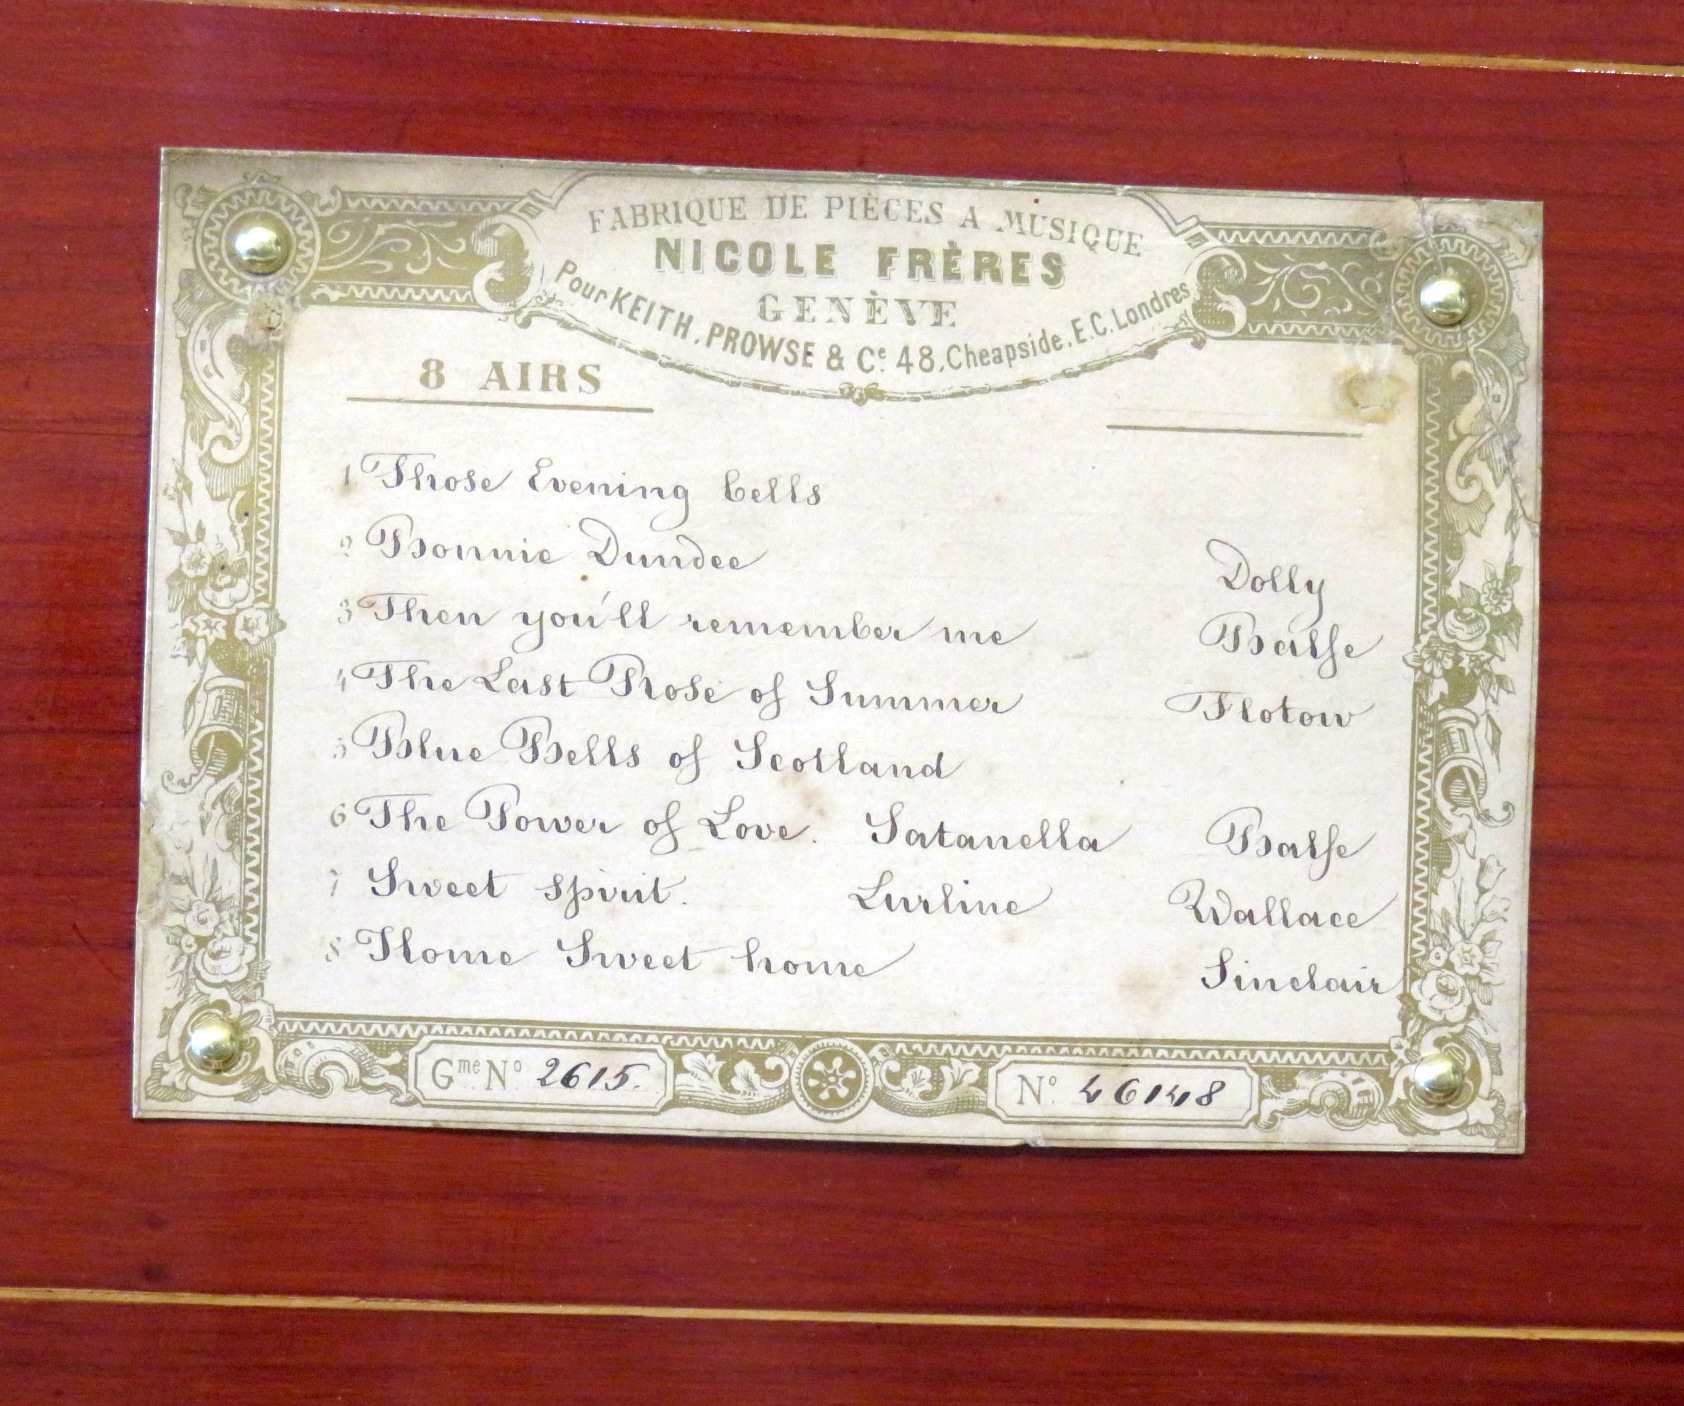 FABRIQUE DE PIÈCES A MUSIQUE
NICOLE FRÈRES
GENÈVE
Pour KEITH, PROWSE & Ce. 48, Cheapside, E.C. Londres
8 AIRS
1 Those Evening bells
2 Bonnie Dundee Dolly
3 Then you'll remember me Balfe
4 The Last Rose of Summer Flotow
5 Blue Bells of Scotland
6 The Power of Love. Satanella Balfe
7 Sweet spirit. Lurline Wallace
8 Home Sweet home Sinclair
Gme No 2615. No. 46148